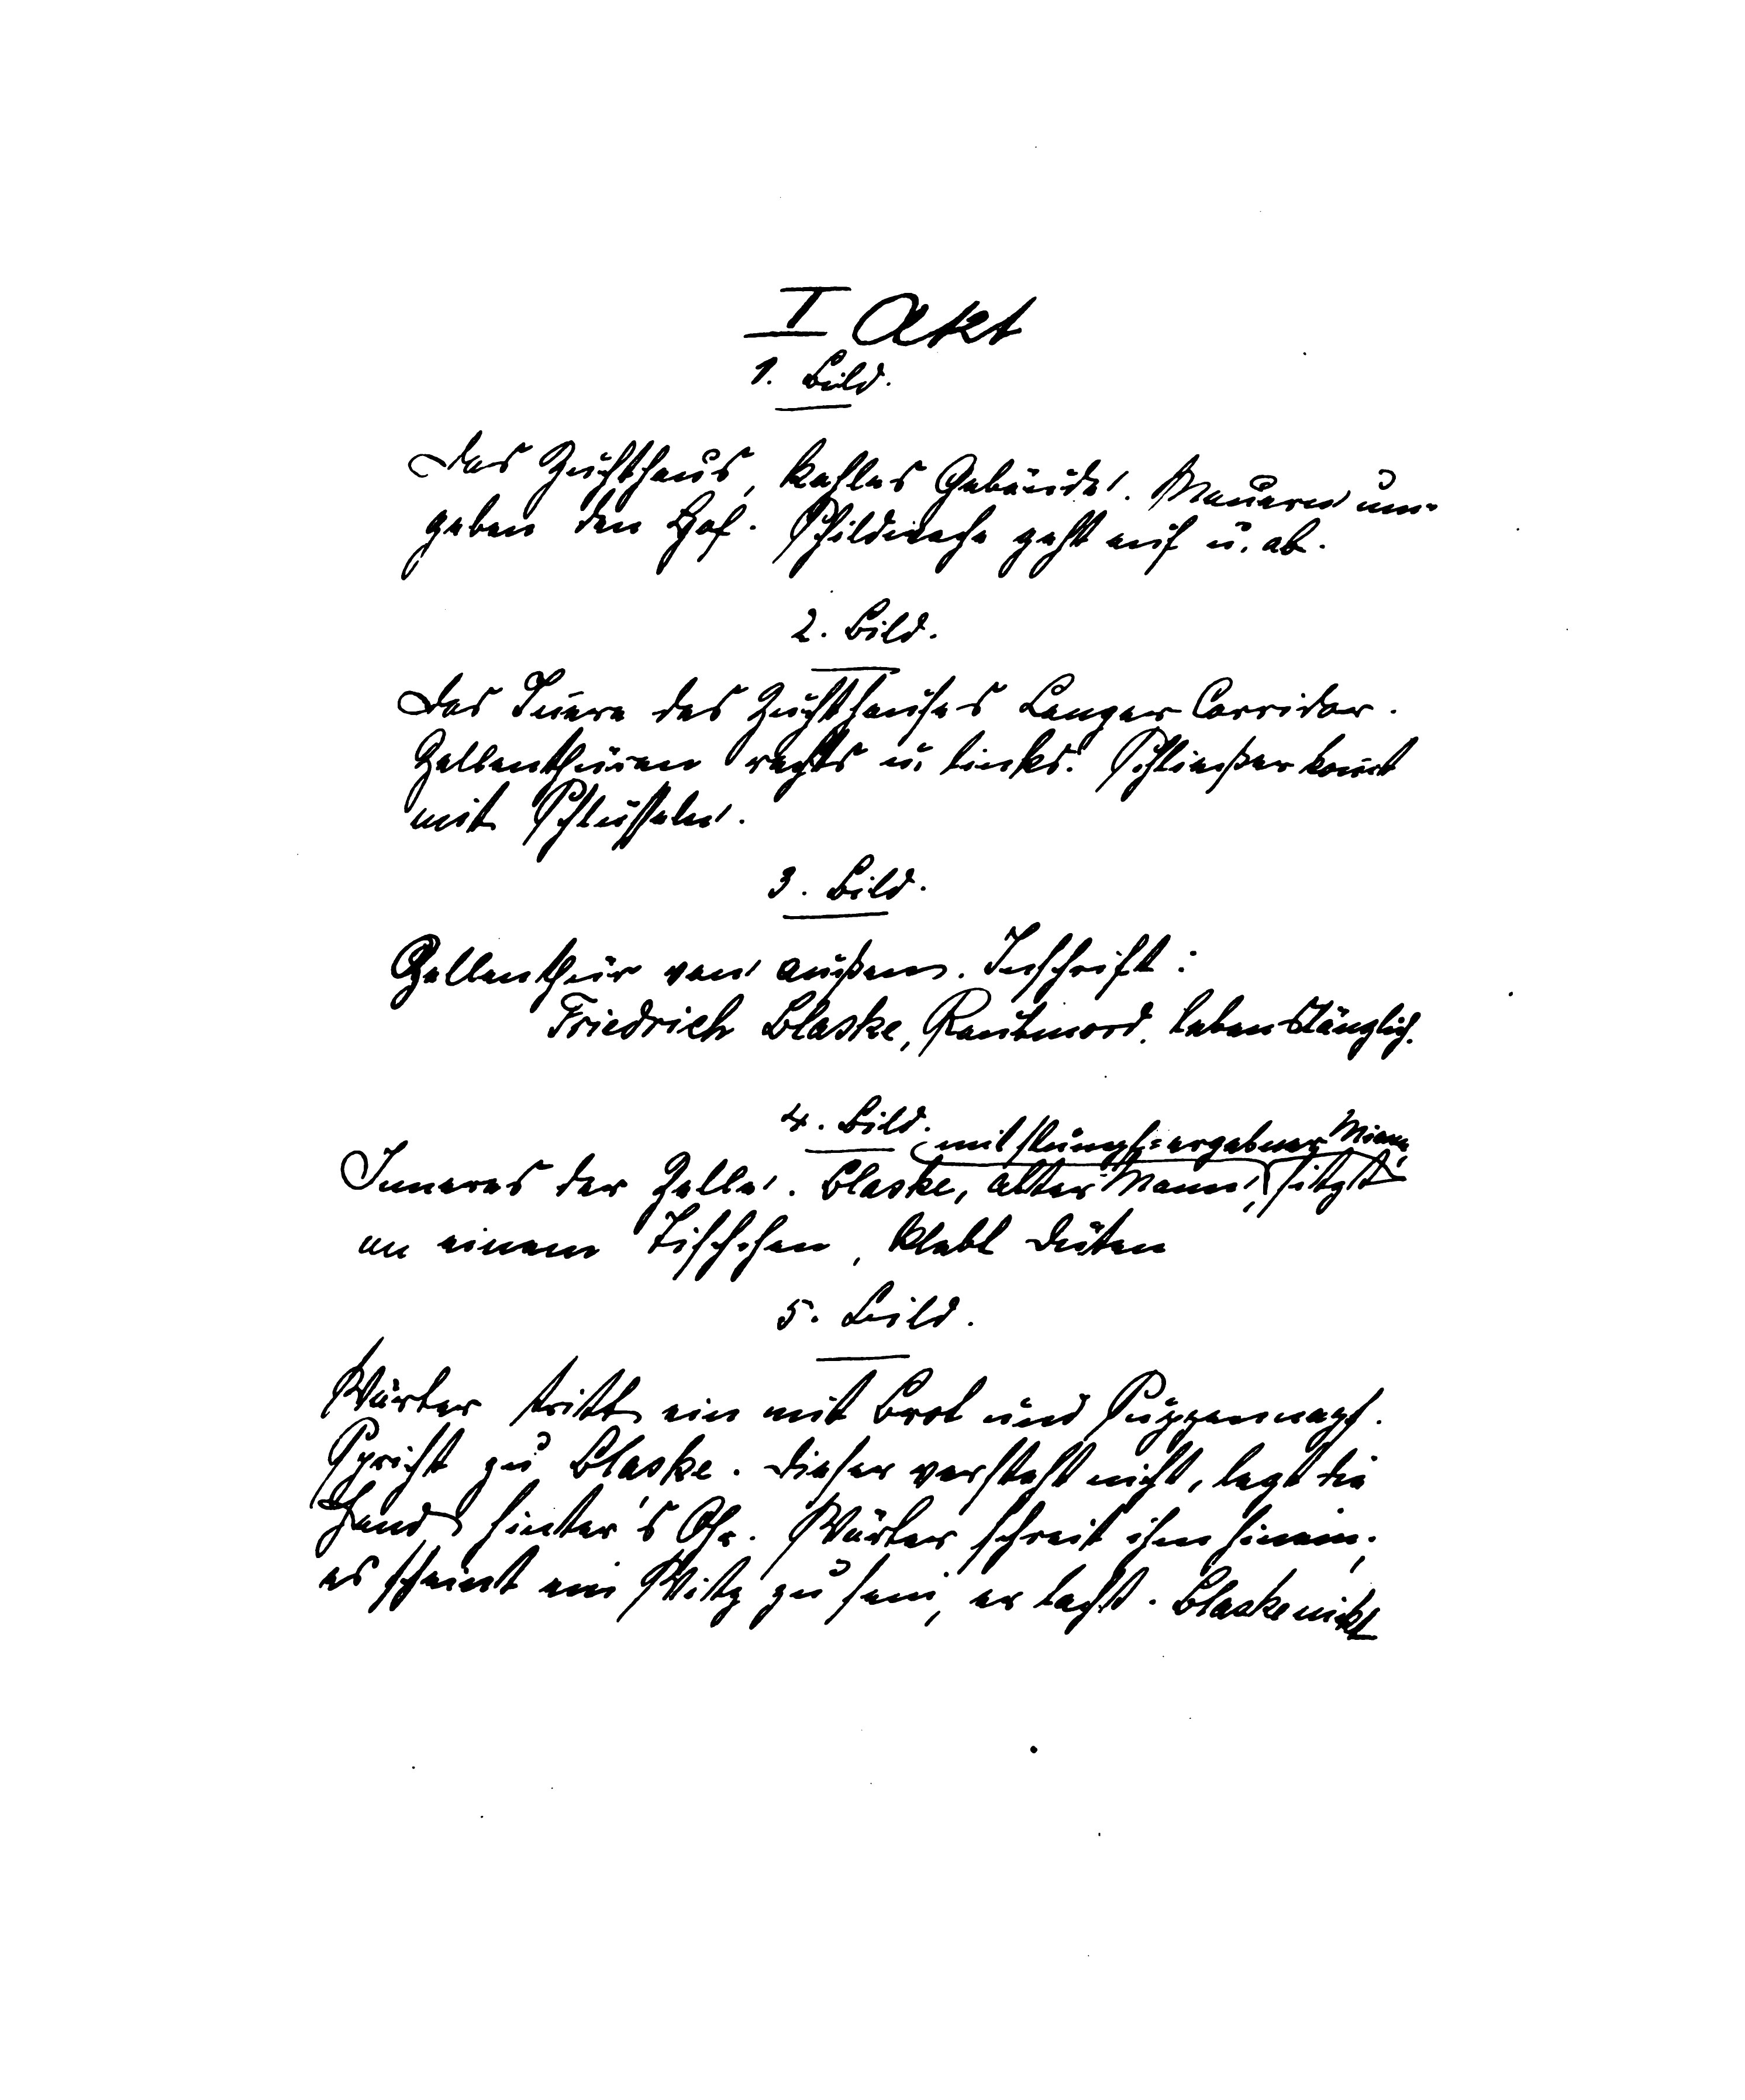 I Akt
1. Bild.
Das Zuchthaus, kahles Gebäude. Mauern um-
geben den Hof. Schildwache geht auf u. ab.
2. Bild.
Das Innere des Zuchthauses Langer Corridor.
Zellenthüren rechts u. links. Schließer kom̅t
mit Schlüsseln.
3. Bild.
Zellenthür von außen. Inschrift:
Friedrich Blaske, Raubmord, lebenslänglich.
4. Bild.
mit stumpf-ergebener Miene,
Inneres der Zelle. Blaske, alter Mann, sitzt
an einem Tischchen, klebt Düten
5. Bild.
Wärter tritt ein mit Brot und Suppennapf.
Spricht zu Blaske. Dieser versteht nicht, legt die
Hand hinter's Ohr. Wärter schreit ihm hinein;
es scheint ein Witz zu sein, er lacht. Blaske nickt